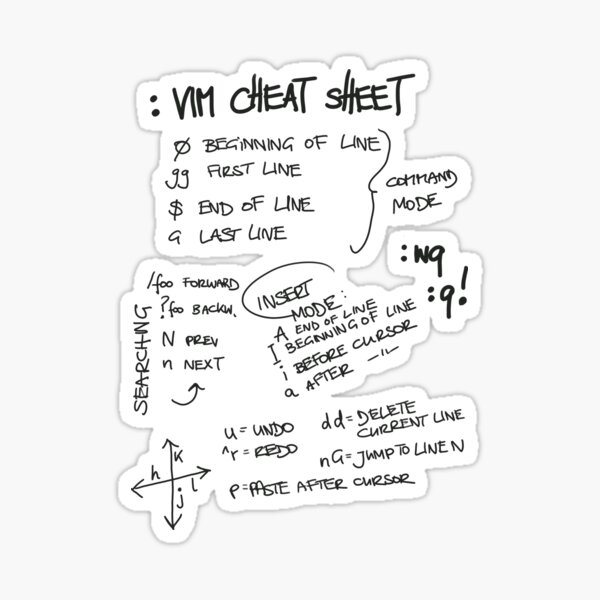 : VIM CHEAT SHEET
0 BEGINNING OF LINE
gg FIRST LINE
$ END OF LINE
G LAST LINE
COMMAND
MODE
:wq
:q!
SEARCHING
/foo FORWARD
?foo BACKW.
N PREV
n NEXT
INSERT
MODE:
A END OF LINE
I BEGINNING OF LINE
i BEFORE CURSOR
a AFTER -"-
u = UNDO
^r = REDO
p = PASTE AFTER CURSOR
dd = DELETE
CURRENT LINE
nG = JUMP TO LINE N
k
h
l
j